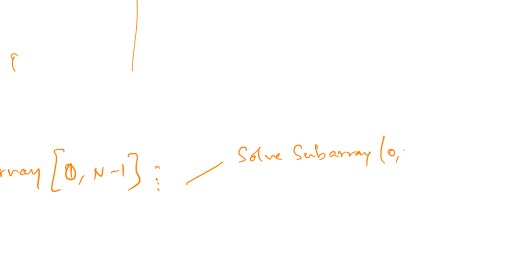 rray [0, N-1] :
Solve Subarray (0,